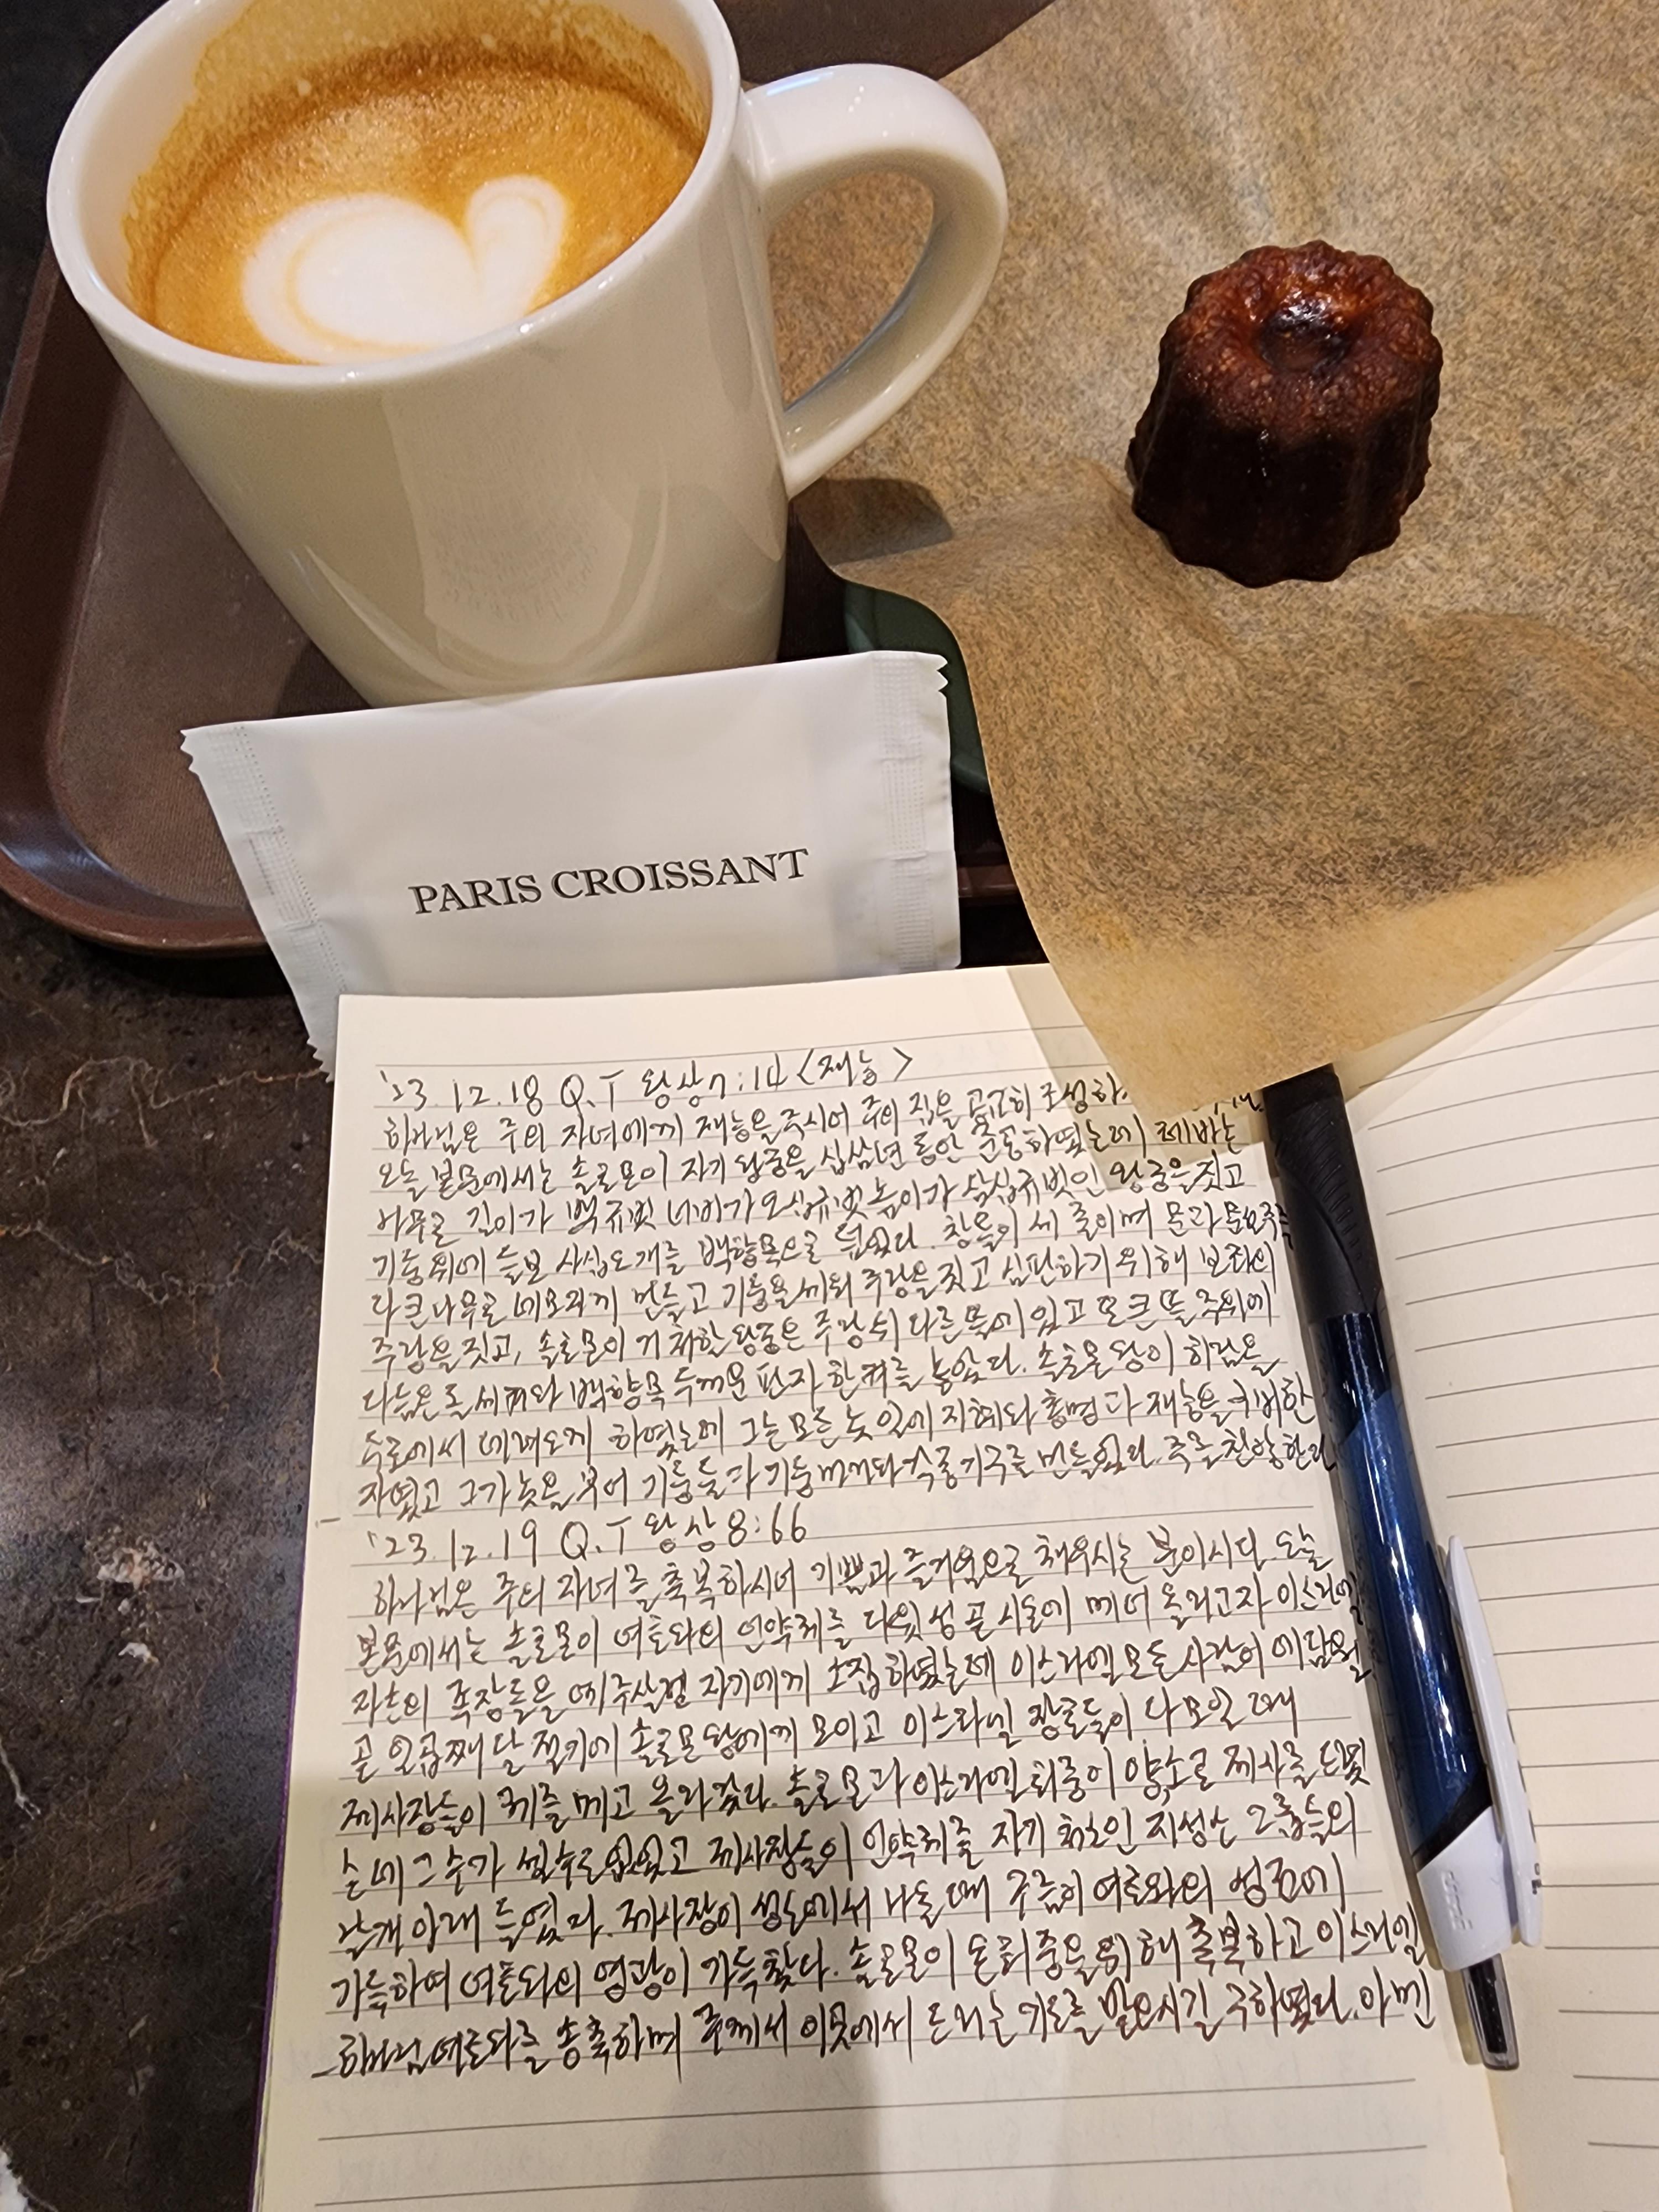 PARIS CROISSANT
'23.12.18 Q.T 왕상7:14 <재능>
하나님은 주의 자녀에게 재능을 주시어 주의 집을 공고히 조성하
오늘 본문에서는 솔로몬이 자기 왕궁을 십삼년 동안 준공하였는데 레바논
나무로 길이가 백 규빗 너비가 오십규빗 높이가 삼십규빗인 왕궁을 짓고
기둥 위에 들보 사십오개를 백향목으로 덮었다. 창틀이 세 줄이며 문과 문설주를
다 큰나무로 네모지게 만들고 기둥을 세워 주랑을 짓고 심판하기 위해 보좌의
주랑을 짓고, 솔로몬이 거처할 왕궁은 주랑 뒤 다른 뜰에 있고 또 큰 뜰 주위에
다듬은 돌 세켜와 백향목 두꺼운 판자 한켜를 놓았다. 솔로몬 왕이 히람을
두로에서 데려오게 하였는데 그는 모든 놋 일에 지혜와 총명과 재능을 구비한
자였고 그가 놋을 부어 기둥들과 기둥머리와 각종기구를 만들었다. 주를 찬양한다
'23.12.19 Q.T 왕상8:66
하나님은 주의 자녀를 축복하시어 기쁨과 즐거움으로 채우시는 분이시다. 오늘
본문에서는 솔로몬이 여호와의 언약궤를 다윗 성 곧 시온에 메어 올리고자 이스라엘
자손의 족장들을 예루살렘 자기에게 소집하였는데 이스라엘 모든 사람이 에다님월
곧 일곱째 달 절기에 솔로몬 왕에게 모이고 이스라엘 장로들이 다 모일 때
제사장들이 궤를 메고 올라갔다. 솔로몬과 이스라엘 회중이 양,소로 제사를 드렸
는데 그 수가 셀 수도 없었고 제사장들이 언약궤를 자기 처소인 지성소 그룹들의
날개 아래 두었다. 제사장이 성소에서 나올 때 구름이 여호와의 성전에
가득하여 여호와의 영광이 가득찼다. 솔로몬이 온 회중을 위해 축복하고 이스라엘
하나님 여호와를 송축하며 주께서 이곳에서 드리는 기도를 받으시길 구하였다. 아멘